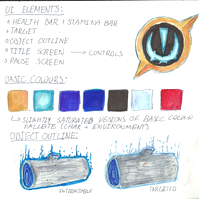 UI ELEMENTS:
HEALTH BAR + STAMINA BAR
TARGET
OBJECT OUTLINE
TITLE SCREEN → CONTROLS
PAUSE SCREEN
BASIC COLOURS:
SLIGHTLY SATURATED VERSIONS OF BASIC COLOUR
PALLETE (CHAR + ENVIRONMENTS)
OBJECT OUTLINE:
INTERACTABLE
TARGETED